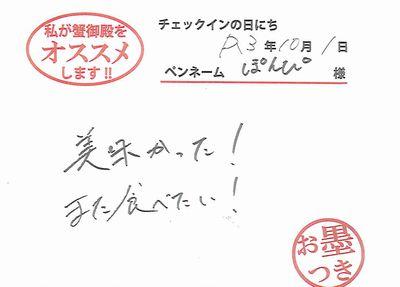 私が蟹御殿を
オススメ
します!!
チェックインの日にち
R3年10月1日
ペンネーム ぽんぴ 様
美味かった!
また食べたい!
お墨
つき